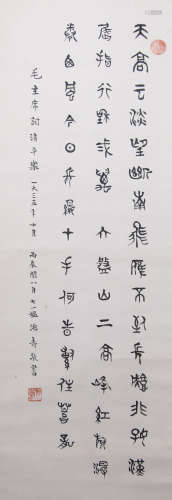 天高云淡望斷南飛雁不到長城非好漢
屈指行程二萬六盤山上高峰紅旗漫
卷西風今日長纓在手何時縛住蒼龍
毛主席詞清平樂一九三五年十月 丙辰閏八月七一嫗游壽敬書